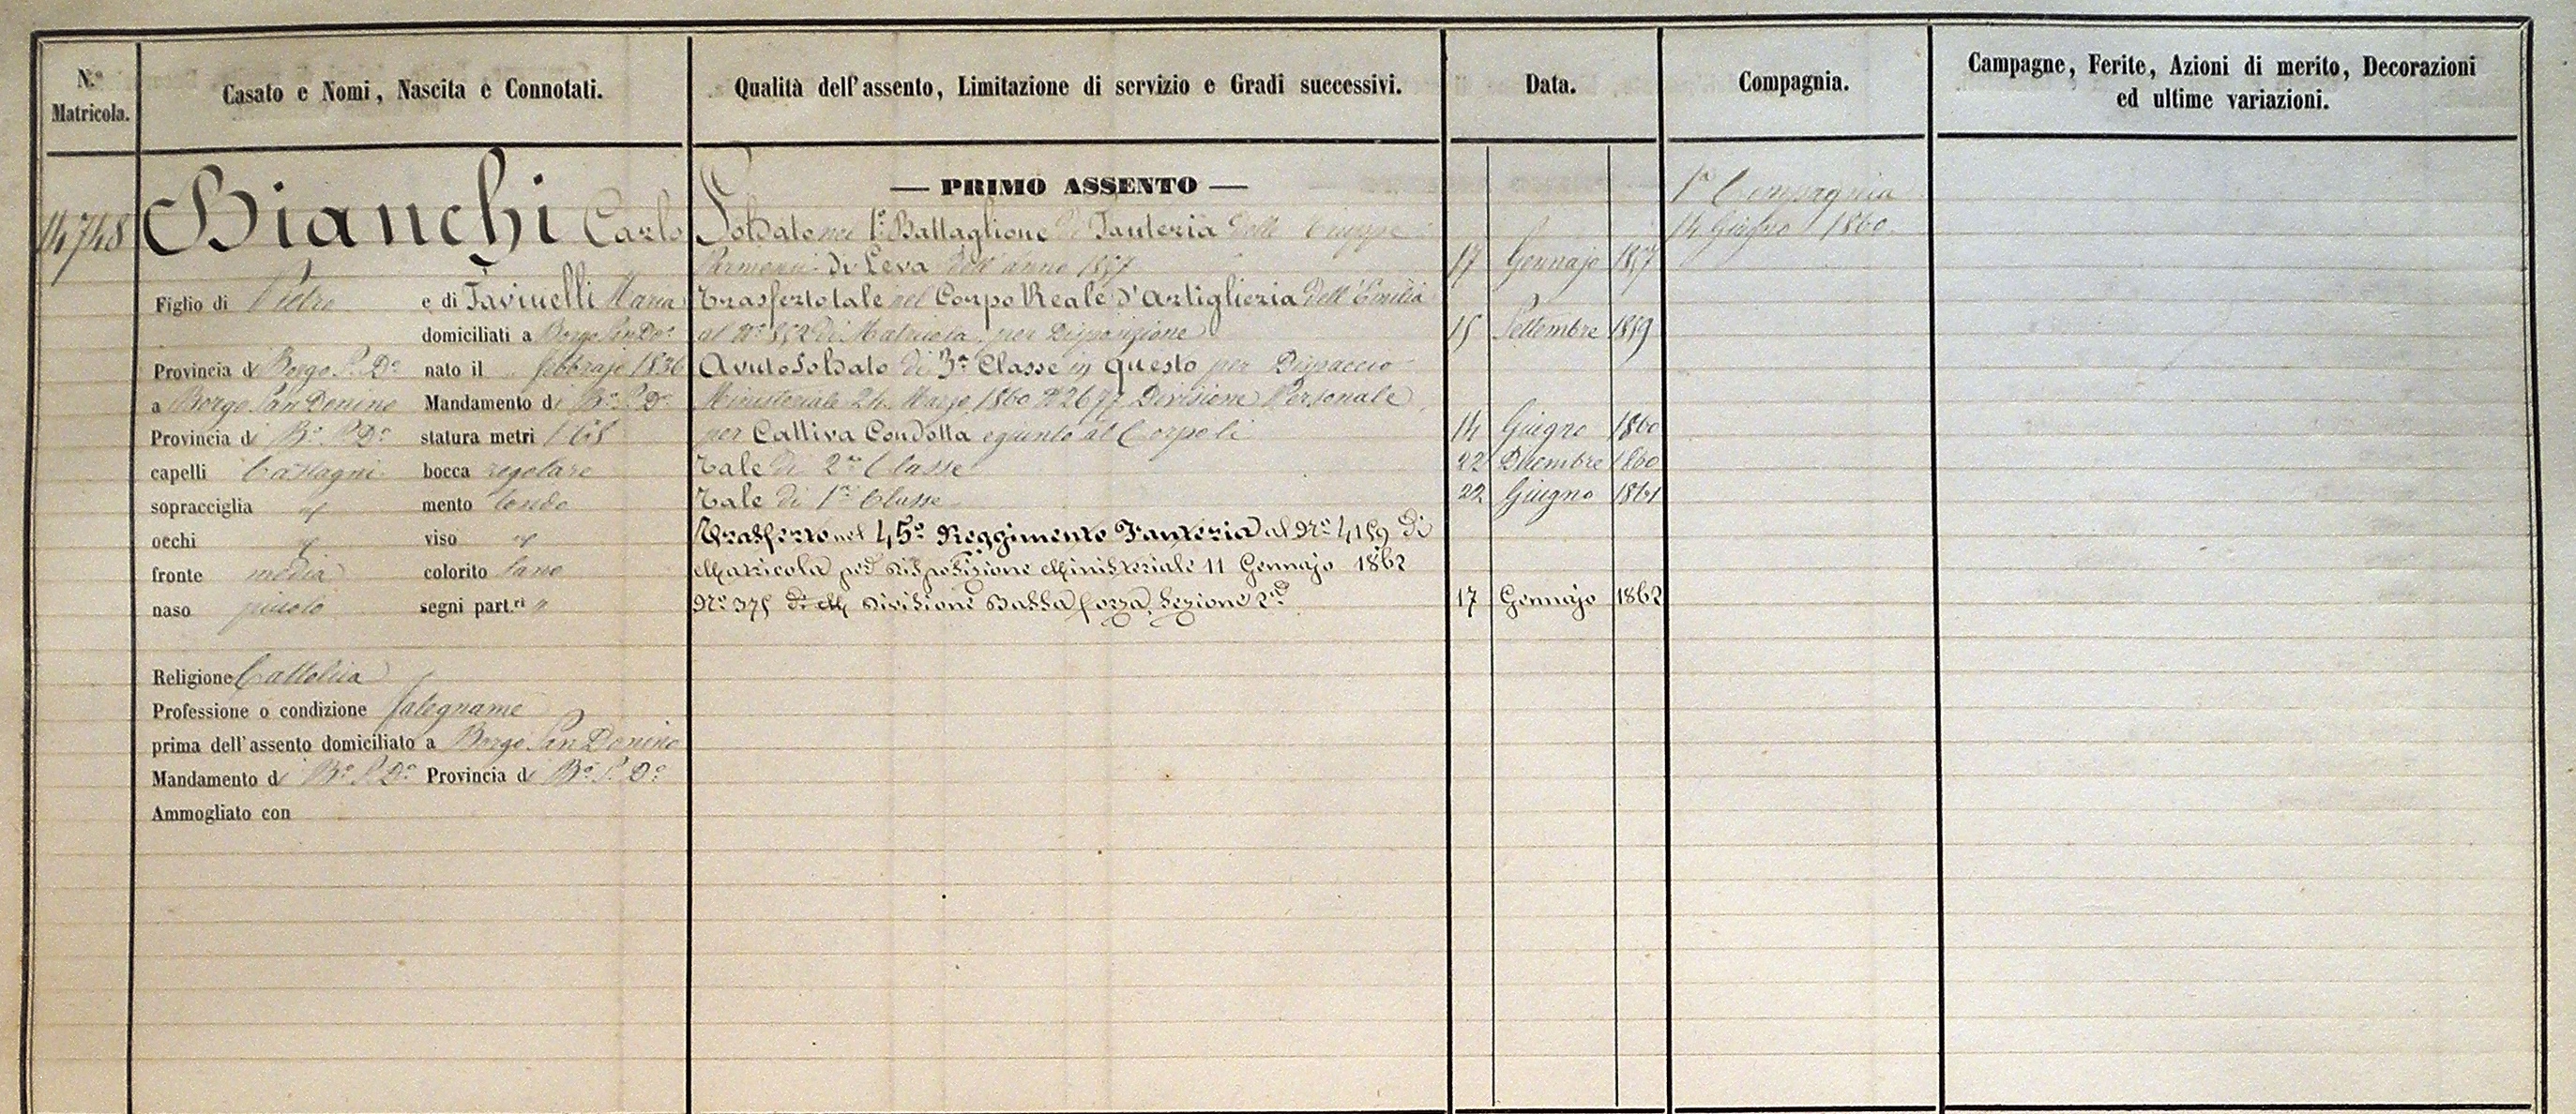 N.º Matricola.
Casato e Nomi, Nascita e Connotati.
Qualità dell'assento, Limitazione di servizio e Gradi successivi.
Data.
Compagnia.
Campagne, Ferite, Azioni di merito, Decorazioni
ed ultime variazioni.
14748
Bianchi Carlo
Figlio di Pietro e di Favinelli Maria
domiciliati a Borgo San Do.º
Provincia di Borgo S. D.º nato il febbrajo 1836
a Borgo San Donino Mandamento di B.º S. D.º
Provincia di B.º S. D.º statura metri 1 68
capelli Castagni bocca regolare
sopracciglia id mento tondo
occhi id viso id
fronte media colorito sano
naso piccolo segni part.ri "
Religione Cattolica
Professione o condizione falegname
prima dell'assento domiciliato a Borgo San Donino
Mandamento di B.º S. D.º Provincia di B.º S. D.º
Ammogliato con
— PRIMO ASSENTO —
Soldato nel 1.º Battaglione di Fanteria delle Truppe
Parmensi di Leva dell'anno 1857 17 Gennajo 1857
Trasferto tale nel Corpo Reale d'Artiglieria dell'Emilia
al N.º 852 di Matricola per Disposizione 15 Settembre 1859
Avuto Soldato di 3.ª Classe in questo per Dispaccio
Ministeriale 24 Marzo 1860 N.º 2677 Divisione Personale
per Cattiva Condotta e giunto al Corpo li 14 Giugno 1860
Tale di 2.ª Classe 22 Dicembre 1860
Tale di 1.ª Classe 22 Giugno 1861
Trasferto nel 45.º Reggimento Fanteria al N.º 4159 di
Matricola per disposizione Ministeriale 11 Gennajo 1862
N.º 375 Divisione Bassa forza, Sezione 2.ª 17 Gennajo 1862
1.ª Compagnia
14 Giugno 1860.